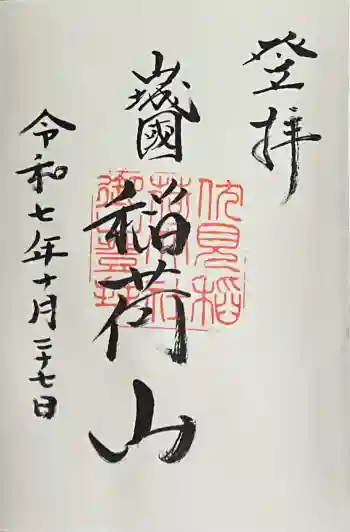 登拝
山城國
稲荷山
令和七年十月二十七日